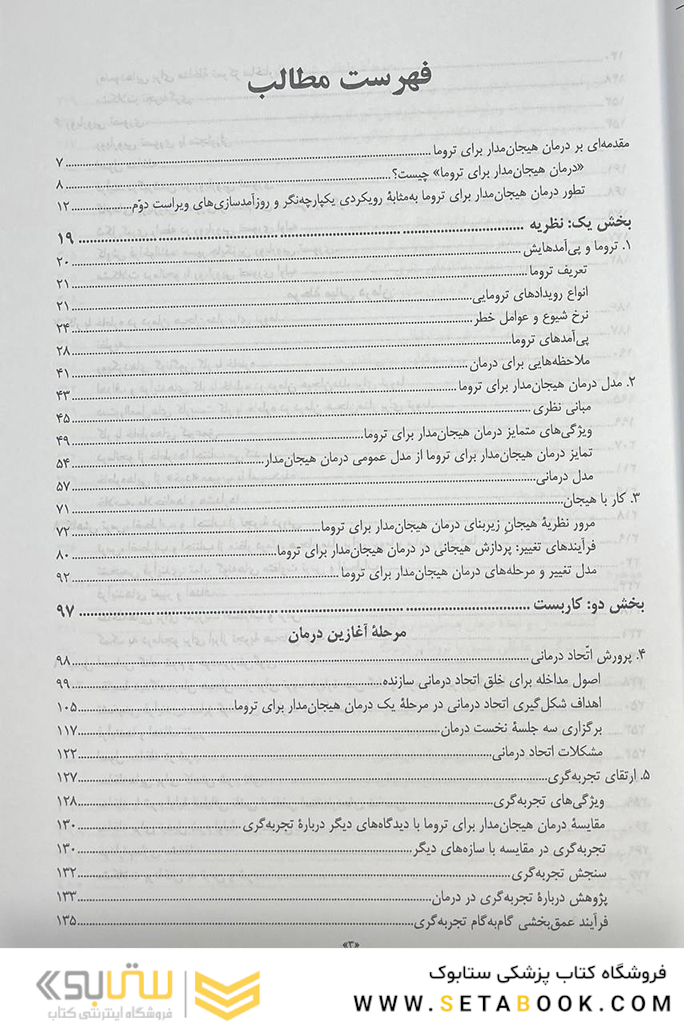 فهرست مطالب
مقدمه‌ای بر درمان هیجان‌مدار برای تروما ۷
«درمان هیجان‌مدار برای تروما» چیست؟ ۸
تطور درمان هیجان‌مدار برای تروما به‌مثابهٔ رویکردی یکپارچه‌نگر و روزآمدسازی‌های ویراست دوّم ۱۲
بخش یک: نظریه ۱۹
۱. تروما و پی‌آمدهایش ۲۰
تعریف تروما ۲۱
انواع رویدادهای ترومایی ۲۱
نرخ شیوع و عوامل خطر ۲۴
پی‌آمدهای تروما ۲۸
ملاحظه‌هایی برای درمان ۴۱
۲. مدل درمان هیجان‌مدار برای تروما ۴۳
مبانی نظری ۴۵
ویژگی‌های متمایز درمان هیجان‌مدار برای تروما ۴۹
تمایز درمان هیجان‌مدار برای تروما از مدل عمومی درمان هیجان‌مدار ۵۴
مدل درمانی ۵۷
۳. کار با هیجان ۷۱
مرور نظریهٔ هیجانِ زیربنای درمان هیجان‌مدار برای تروما ۷۲
فرآیندهای تغییر: پردازش هیجانی در درمان هیجان‌مدار برای تروما ۸۰
مدل تغییر و مرحله‌های درمان هیجان‌مدار برای تروما ۹۲
بخش دو: کاربست ۹۷
مرحلهٔ آغازین درمان
۴. پرورش اتّحاد درمانی ۹۸
اصول مداخله برای خلق اتحاد درمانی سازنده ۹۹
اهداف شکل‌گیری اتحاد درمانی در مرحلهٔ یک درمان هیجان‌مدار برای تروما ۱۰۵
برگزاری سه جلسهٔ نخست درمان ۱۱۷
مشکلات اتحاد درمانی ۱۲۲
۵. ارتقای تجربه‌گری ۱۲۷
ویژگی‌های تجربه‌گری ۱۲۸
مقایسهٔ درمان هیجان‌مدار برای تروما با دیدگاه‌های دیگر دربارهٔ تجربه‌گری ۱۳۰
تجربه‌گری در مقایسه با سازه‌های دیگر ۱۳۰
سنجش تجربه‌گری ۱۳۲
پژوهش دربارهٔ تجربه‌گری در درمان ۱۳۳
فرآیند عمق‌بخشی گام‌به‌گام تجربه‌گری ۱۳۵
«۳»
فروشگاه کتاب پزشکی ستابوک
WWW.SETABOOK.COM
ستابوک
فروشگاه اینترنتی کتاب